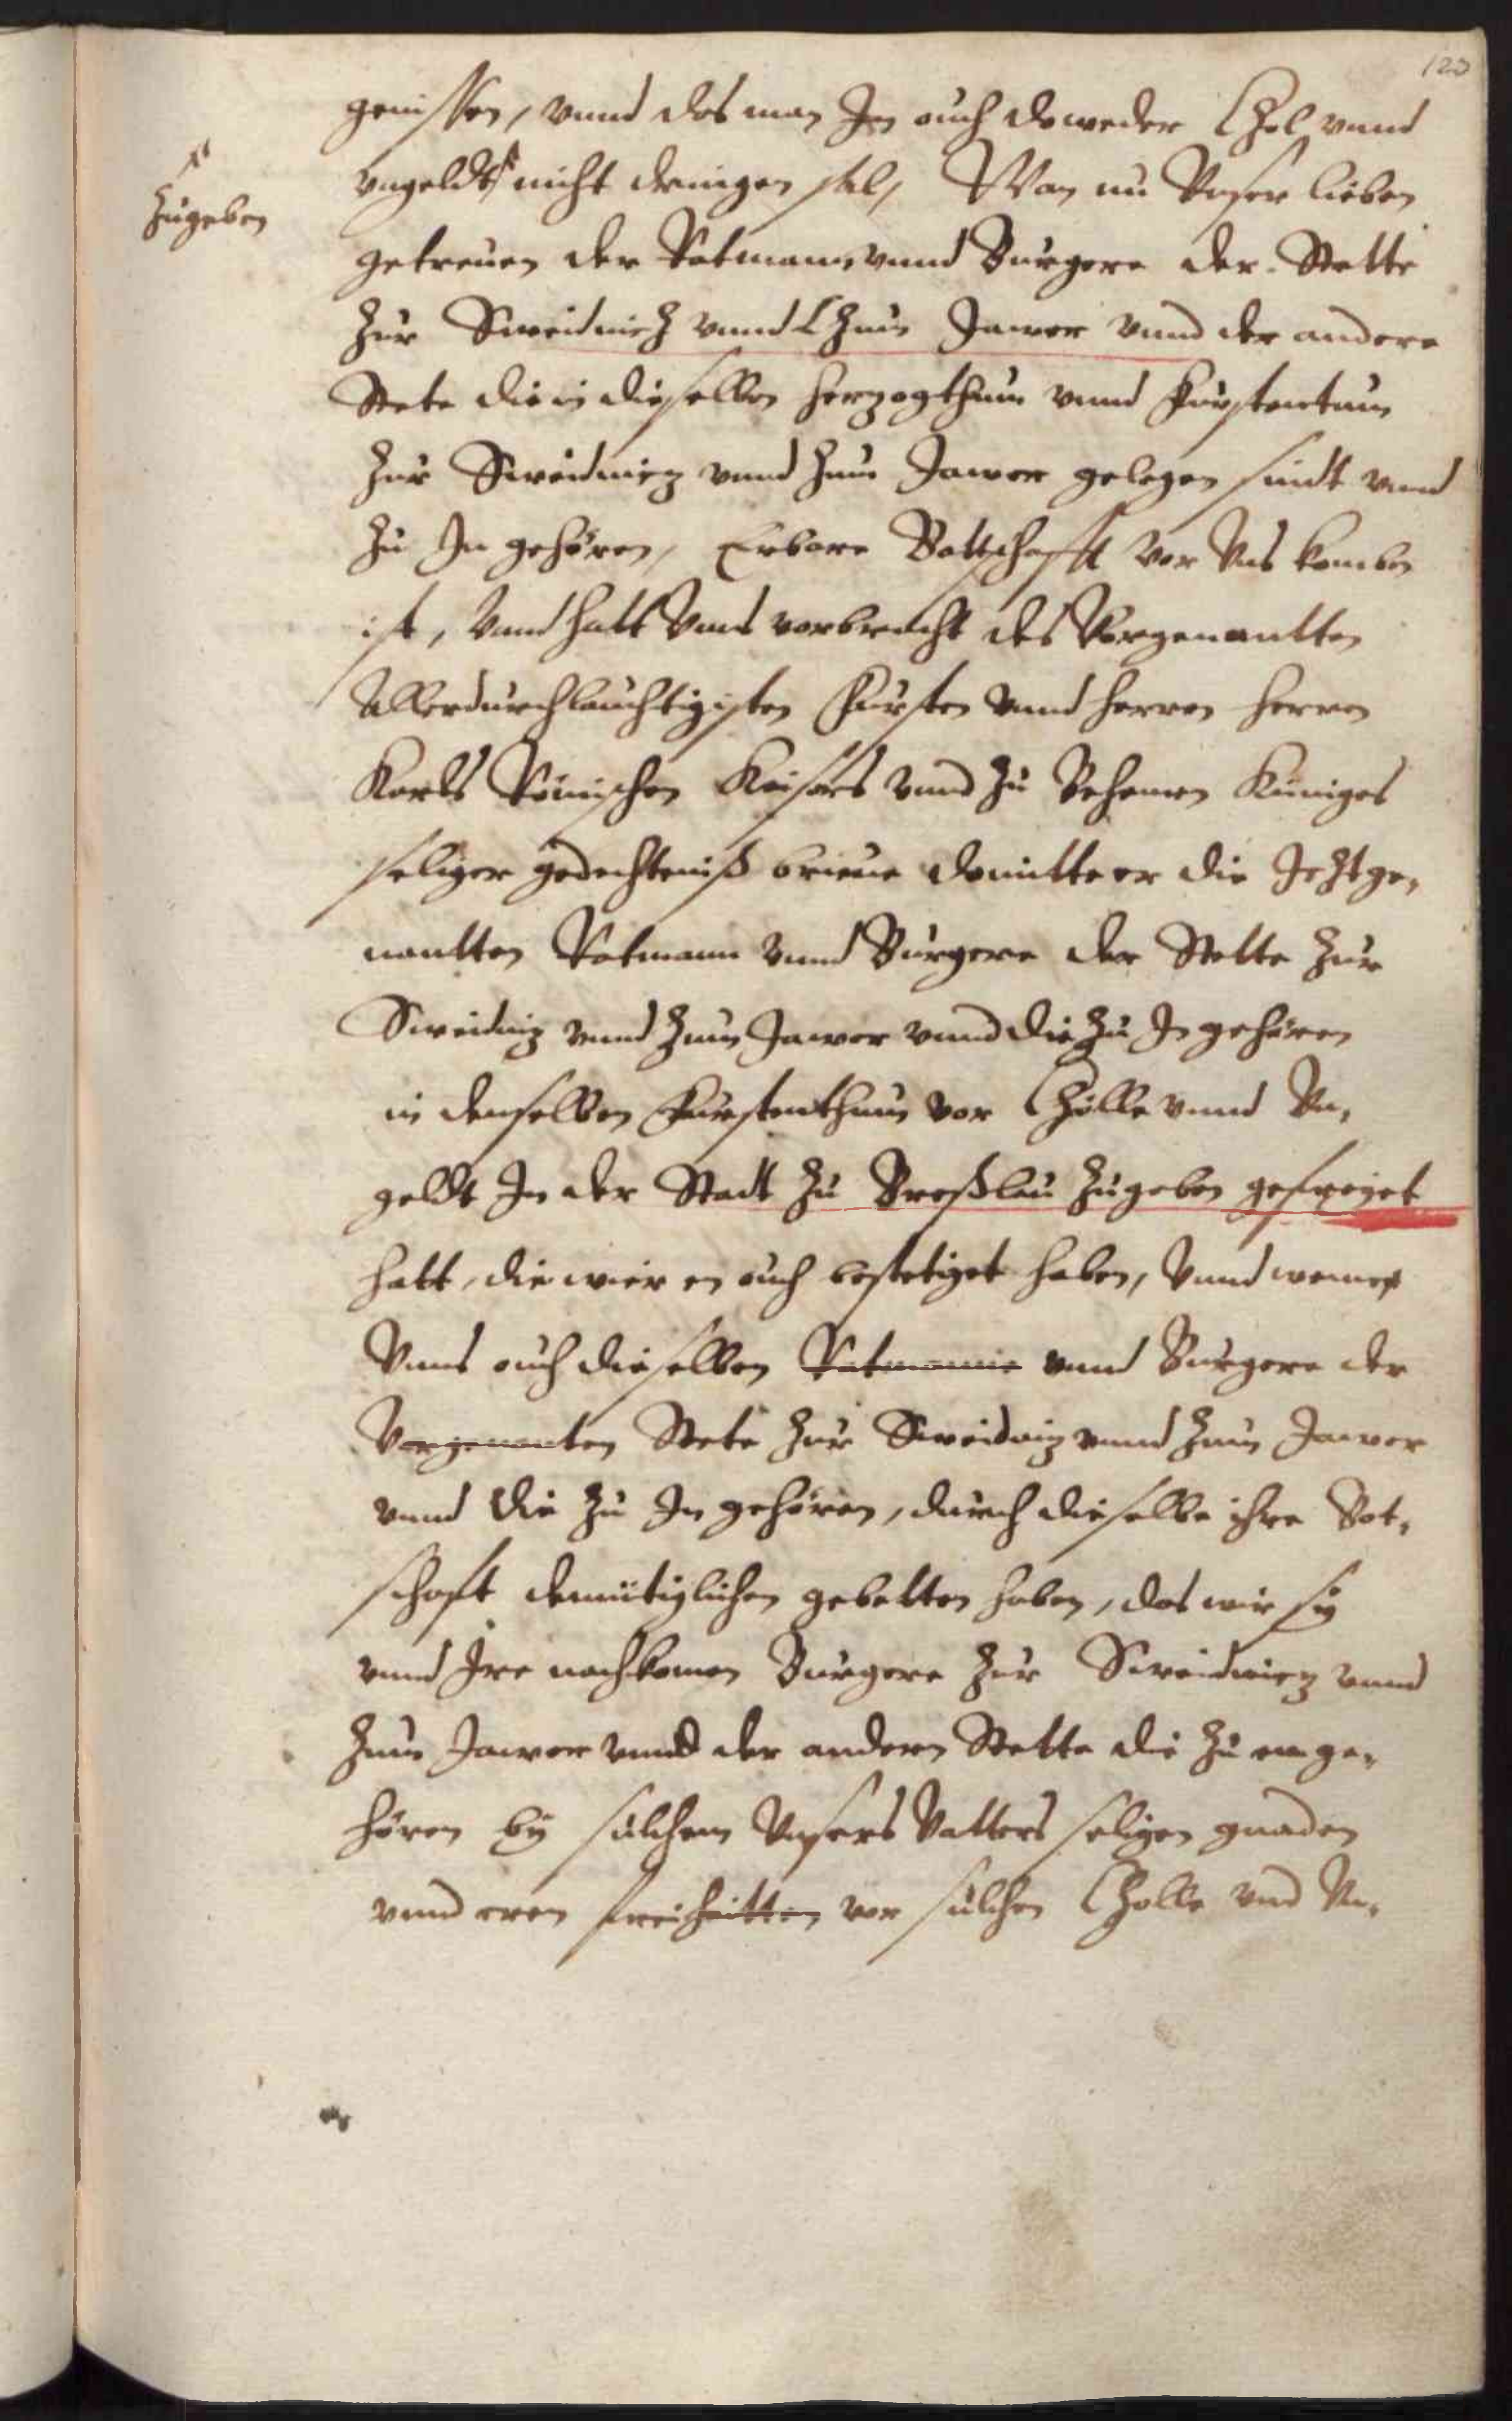 120
genissen, vnnd das man In auch doweder Zol vnnd
vngeldt nicht dringen sal, Wan nu Vnser lieben
zugeben
getreuen der Ratmann vnnd Burgere der Stette
zur Sweidnicz vnnd Zum Jawer vnnd der andere
Stete die in dieselben herzogthum vnnd Furstentum
zur Sweidnicz vnnd zum Jawer gelegen sindt vnnd
zu In gehören, Erbare Bottschafft vor Vns komben
ist, Vnnd hatt Vnns vorbracht des Vorgenantten
Allerdurchlauchtigisten Fursten vnnd herren herren
Karls Römischen Keisers vnnd zu Behemen Kuniges
seliger gedechtnuß brieue domitte er die Jeztge,
nantten Ratmann vnnd Burgere der Stette zur
Sweidniz vnnd zum Jawer vnnd die zu In gehören
in denselben Furstenthum vor Zölle vnnd Vn,
geldt In der Stadt zu Breßlau zugeben gefreyet
hatt, die wier en auch bestetiget haben, Vnnd wenn
Vnns auch dieselben Ratmanne vnnd Burgere der
Vorgenanten Stete zur Sweidniz vnnd zum Jawer
vnnd die zu In gehören, durch dieselbe ihre Bot,
schaft demütiglichen gebetten haben, das wir sy
vnnd Ire nachkomen Burgere zur Sweidnicz vnnd
zum Jawer vnnd der andern Stette die zu en ge,
hören by sulchem Vnsers Vatters seligen gnaden
vnnd eren freiheitten vor sulchen Zolle vnd Vn,